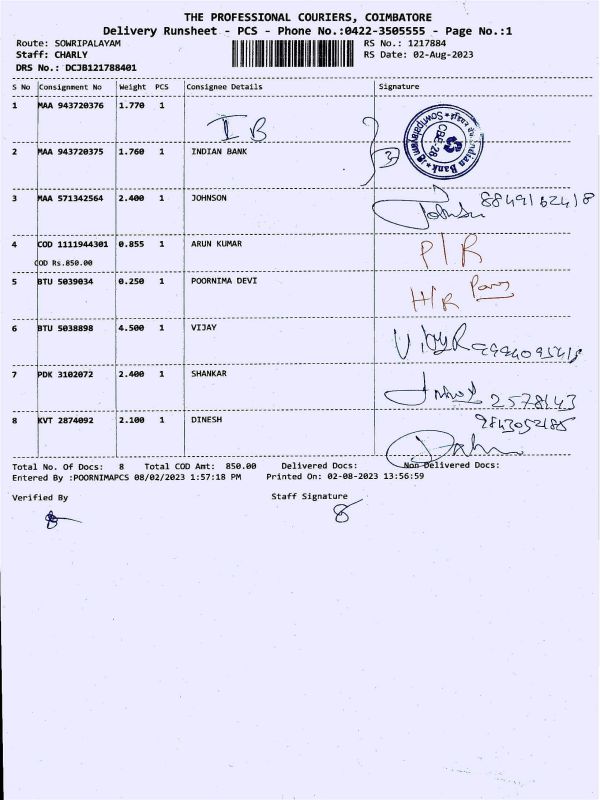 THE PROFESSIONAL COURIERS, COIMBATORE
Delivery Runsheet - PCS - Phone No.:0422-3505555 - Page No.:1
Route: SOWRIPALAYAM RS No.: 1217884
Staff: CHARLY RS Date: 02-Aug-2023
DRS No.: DCJB121788401
S No Consignment No Weight PCS Consignee Details Signature
1 MAA 943720376 1.770 1 IB
2 MAA 943720375 1.760 1 INDIAN BANK
Indian Bank Sowripalayam CBE-28
3 MAA 571342564 2.400 1 JOHNSON Johnson
4 COD 1111944301 0.855 1 ARUN KUMAR P/R
COD Rs.850.00
5 BTU 5039034 0.250 1 POORNIMA DEVI H/R
6 BTU 5038898 4.500 1 VIJAY
7 PDK 3102072 2.400 1 SHANKAR 2578143
8 KVT 2874092 2.100 1 DINESH 9843052185
Total No. Of Docs: 8 Total COD Amt: 850.00 Delivered Docs: Non Delivered Docs:
Entered By :POORNIMAPCS 08/02/2023 1:57:18 PM Printed On: 02-08-2023 13:56:59
Verified By Staff Signature